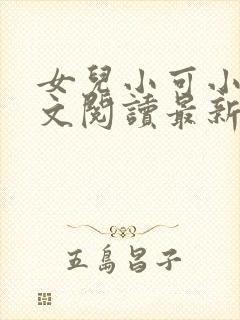 女兒小可小
文閱讀最新
五島昌子